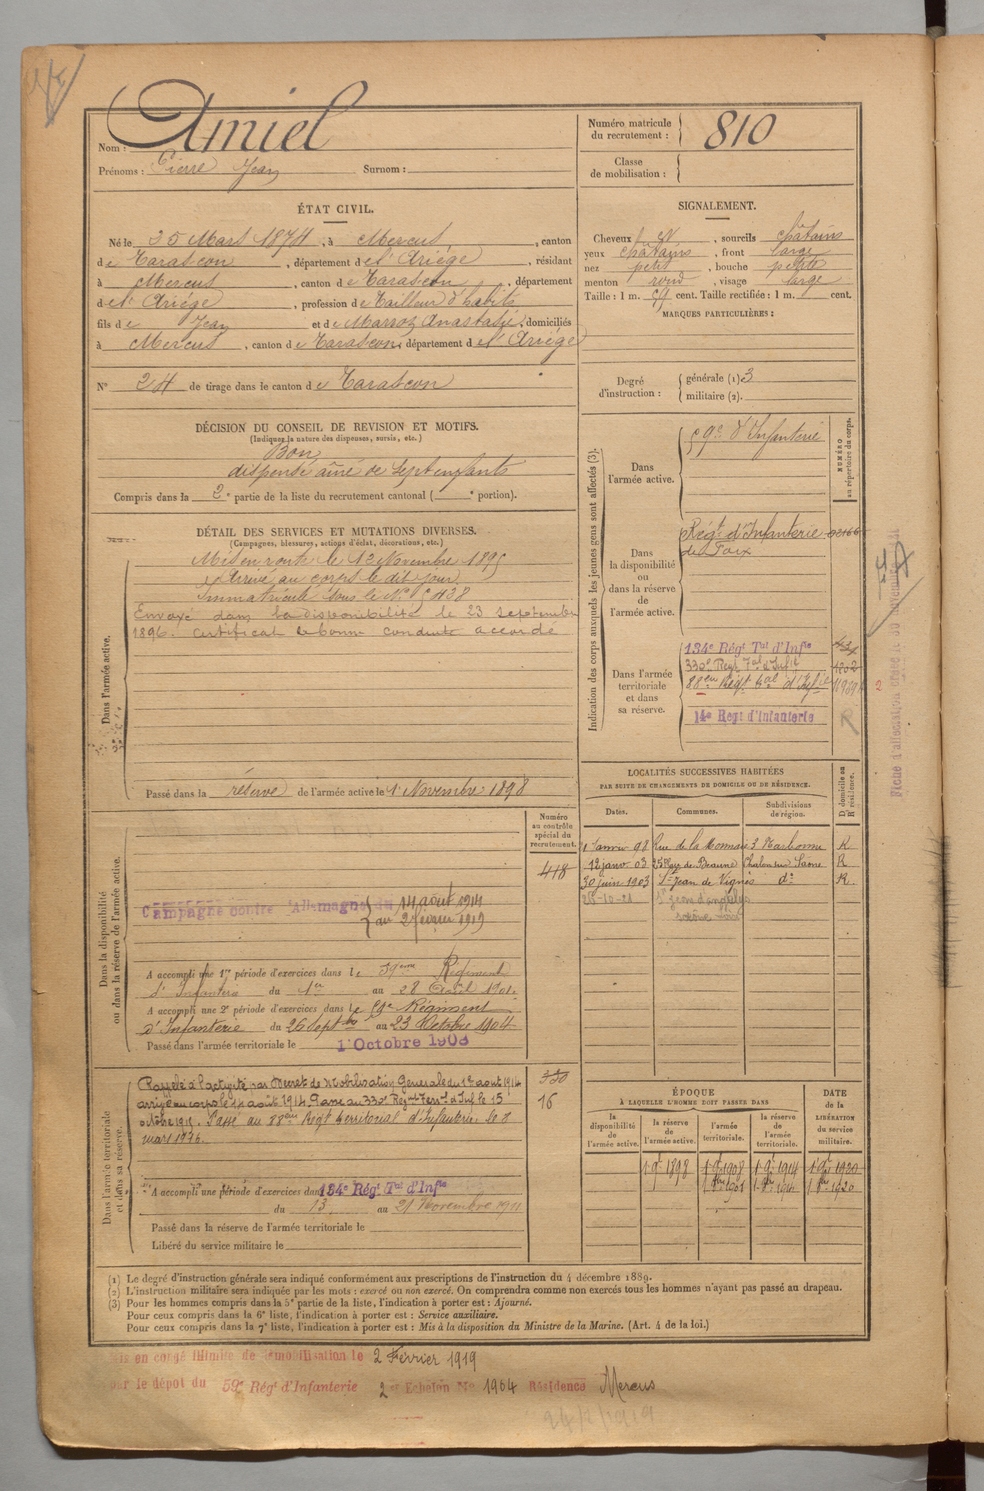 Nom : Amiel
Prénoms : Pierre Jean Surnom :
Numéro matricule du recrutement : 810
Classe de mobilisation :
ÉTAT CIVIL.
Né le 25 Mars 1874, à Mercus, canton
de Tarascon, département de l'Ariège, résidant
à Mercus, canton de Tarascon, département
de l'Ariège, profession de Tailleur d'habits
fils de Jean et de Marrot Anastasie, domiciliés
à Mercus, canton de Tarascon, département de l'Ariège
N° 24 de tirage dans le canton de Tarascon
SIGNALEMENT.
Cheveux, sourcils châtains
yeux châtains, front large
nez petit, bouche petite
menton rond, visage large
Taille : 1 m. 59 cent. Taille rectifiée : 1 m. cent.
MARQUES PARTICULIÈRES :
Degré d'instruction : générale (1) 3
militaire (2).
DÉCISION DU CONSEIL DE REVISION ET MOTIFS.
(Indiquez la nature des dispenses, sursis, etc.)
Bon
dispensé aîné de sept enfants
Compris dans la 2e partie de la liste du recrutement cantonal ( e portion).
DÉTAIL DES SERVICES ET MUTATIONS DIVERSES.
(Campagnes, blessures, actions d'éclat, décorations, etc.)
Dans l'armée active.
Mis en route le 13 Novembre 1895
Arrivé au corps le dit jour
Immatriculé sous le N°
Envoyé dans la disponibilité le 23 septembre
1896. Certificat de bonne conduite accordé
Passé dans la réserve de l'armée active le 1 Novembre 1898
Indication des corps auxquels les jeunes gens sont affectés (3).
NUMÉRO au répertoire du corps.
Dans l'armée active.
59e d'Infanterie
Dans la disponibilité ou dans la réserve de l'armée active.
Régt d'Infanterie
de Foix
Dans l'armée territoriale et dans sa réserve.
134e Régt Tal d'Infie
330e Régt Tal d'Infie 1202
88em Régt Tal d'Infie
14e Regt d'Infanterie
Fiche d'affectation
LOCALITÉS SUCCESSIVES HABITÉES
PAR SUITE DE CHANGEMENTS DE DOMICILE OU DE RÉSIDENCE.
D. domicile ou R. résidence.
Dates. Communes. Subdivisions de région.
1 janvier 98 Rue de la Monnaie 3 Narbonne R
12 janv 03 25 Rue de Beaune Chalon sur Saône R
30 juin 1903 St Jean de Vignes do R
Numéro au contrôle spécial du recrutement.
418
Dans la disponibilité ou dans la réserve de l'armée active.
Campagne contre l'Allemagne du 14 août 1914
au 2 février 1919
A accompli une 1re période d'exercices dans le 59ème Régiment
d'Infanterie du 1er au 28 Avril 1901.
A accompli une 2e période d'exercices dans le 59e Régiment
d'Infanterie du 26 Septbre au 23 Octobre 1904
Passé dans l'armée territoriale le 1 Octobre 1908
Dans l'armée territoriale et dans sa réserve.
Rappelé à l'activité par Décret de Mobilisation Générale du 1er août 1914
arrivé au corps le 14 août 1914. Passé au 330e Régiment Terral d'Inf le 15
octobre 1915. Passé au 88ème Régt territorial d'Infanterie le 8
mars 1916.
330
16
A accompli une période d'exercices dans 134e Régt Tal d'Infie
du 13 au 21 Novembre 1911
Passé dans la réserve de l'armée territoriale le
Libéré du service militaire le
ÉPOQUE
À LAQUELLE L'HOMME DOIT PASSER DANS
la disponibilité de l'armée active. la réserve de l'armée active. l'armée territoriale. la réserve de l'armée territoriale.
DATE de la LIBÉRATION du service militaire.
(1) Le degré d'instruction générale sera indiqué conformément aux prescriptions de l'instruction du 4 décembre 1889.
(2) L'instruction militaire sera indiquée par les mots : exercé ou non exercé. On comprendra comme non exercés tous les hommes n'ayant pas passé au drapeau.
(3) Pour les hommes compris dans la 5e partie de la liste, l'indication à porter est : Ajourné.
Pour ceux compris dans la 6e liste, l'indication à porter est : Service auxiliaire.
Pour ceux compris dans la 7e liste, l'indication à porter est : Mis à la disposition du Ministre de la Marine. (Art. 4 de la loi.)
Mis en congé illimité de démobilisation le 2 Février 1919
par le dépôt du 59e Régt d'Infanterie 2e Echelon No 1904 Résidence Mercus